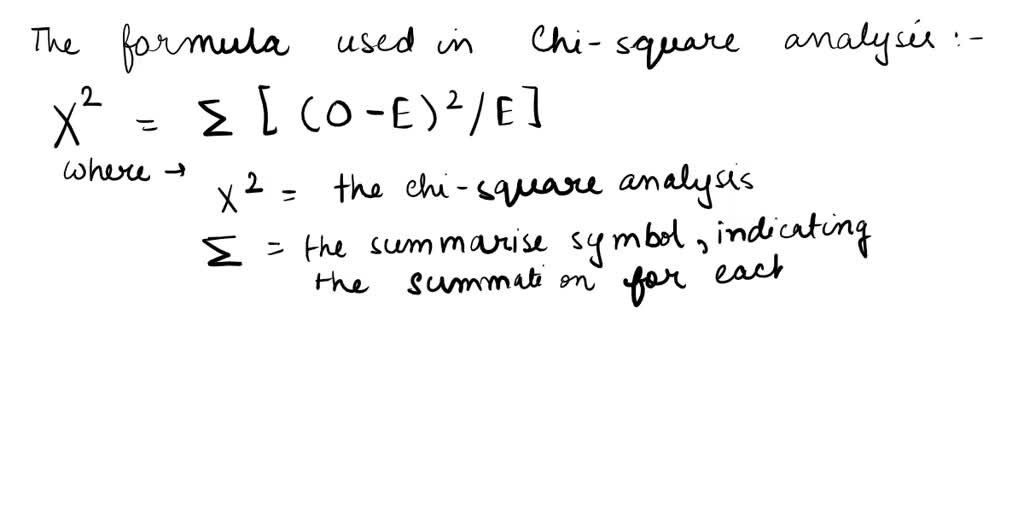 The formula used in Chi-square analysis :-
X² = Σ [ (O - E)² / E ]
where →
X² = the chi-square analysis
Σ = the summarise symbol, indicating
the summation for each